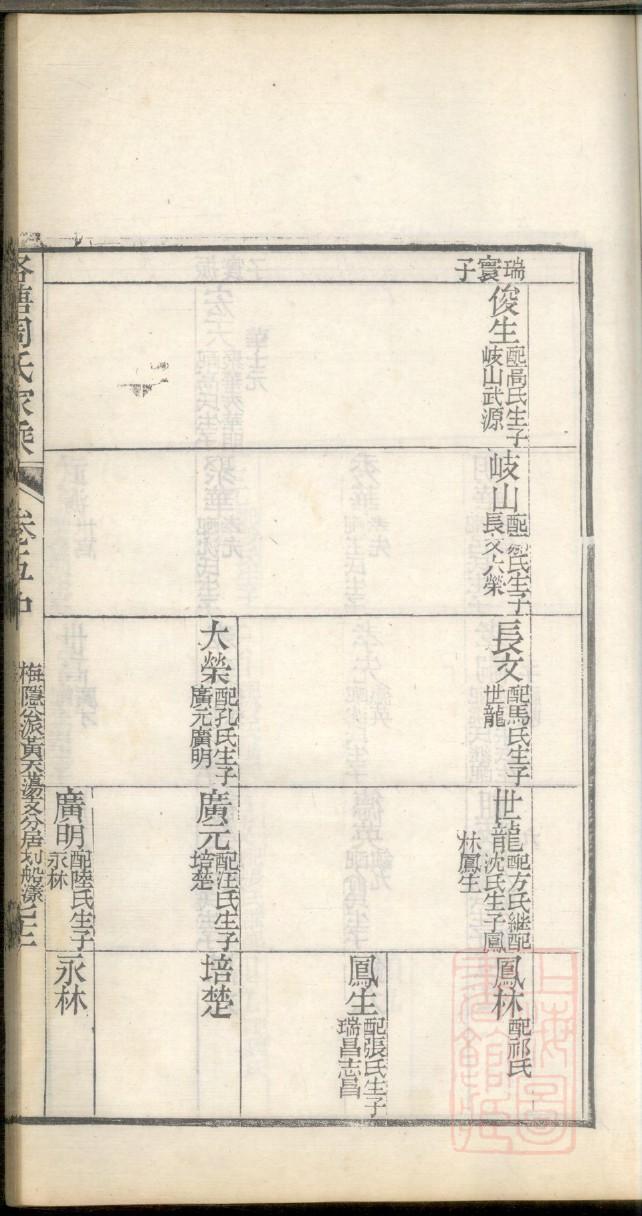 瑞寰子
俊生
配高氏生子
岐山武源
岐山
氏生子
長文大榮
長文
配馬氏生子
世龍
大榮
配孔氏生子
廣元廣明
世龍
配方氏繼配
沈氏生子鳳
林鳳生
廣元
配汪氏生子
培楚
廣明
配陸氏生子
永林
鳳林
配祁氏
鳳生
配張氏生子
瑞昌志昌
培楚
永林
塘周氏家乘
卷五中
梅隱公派黃天蕩支分居
上海圖書館藏